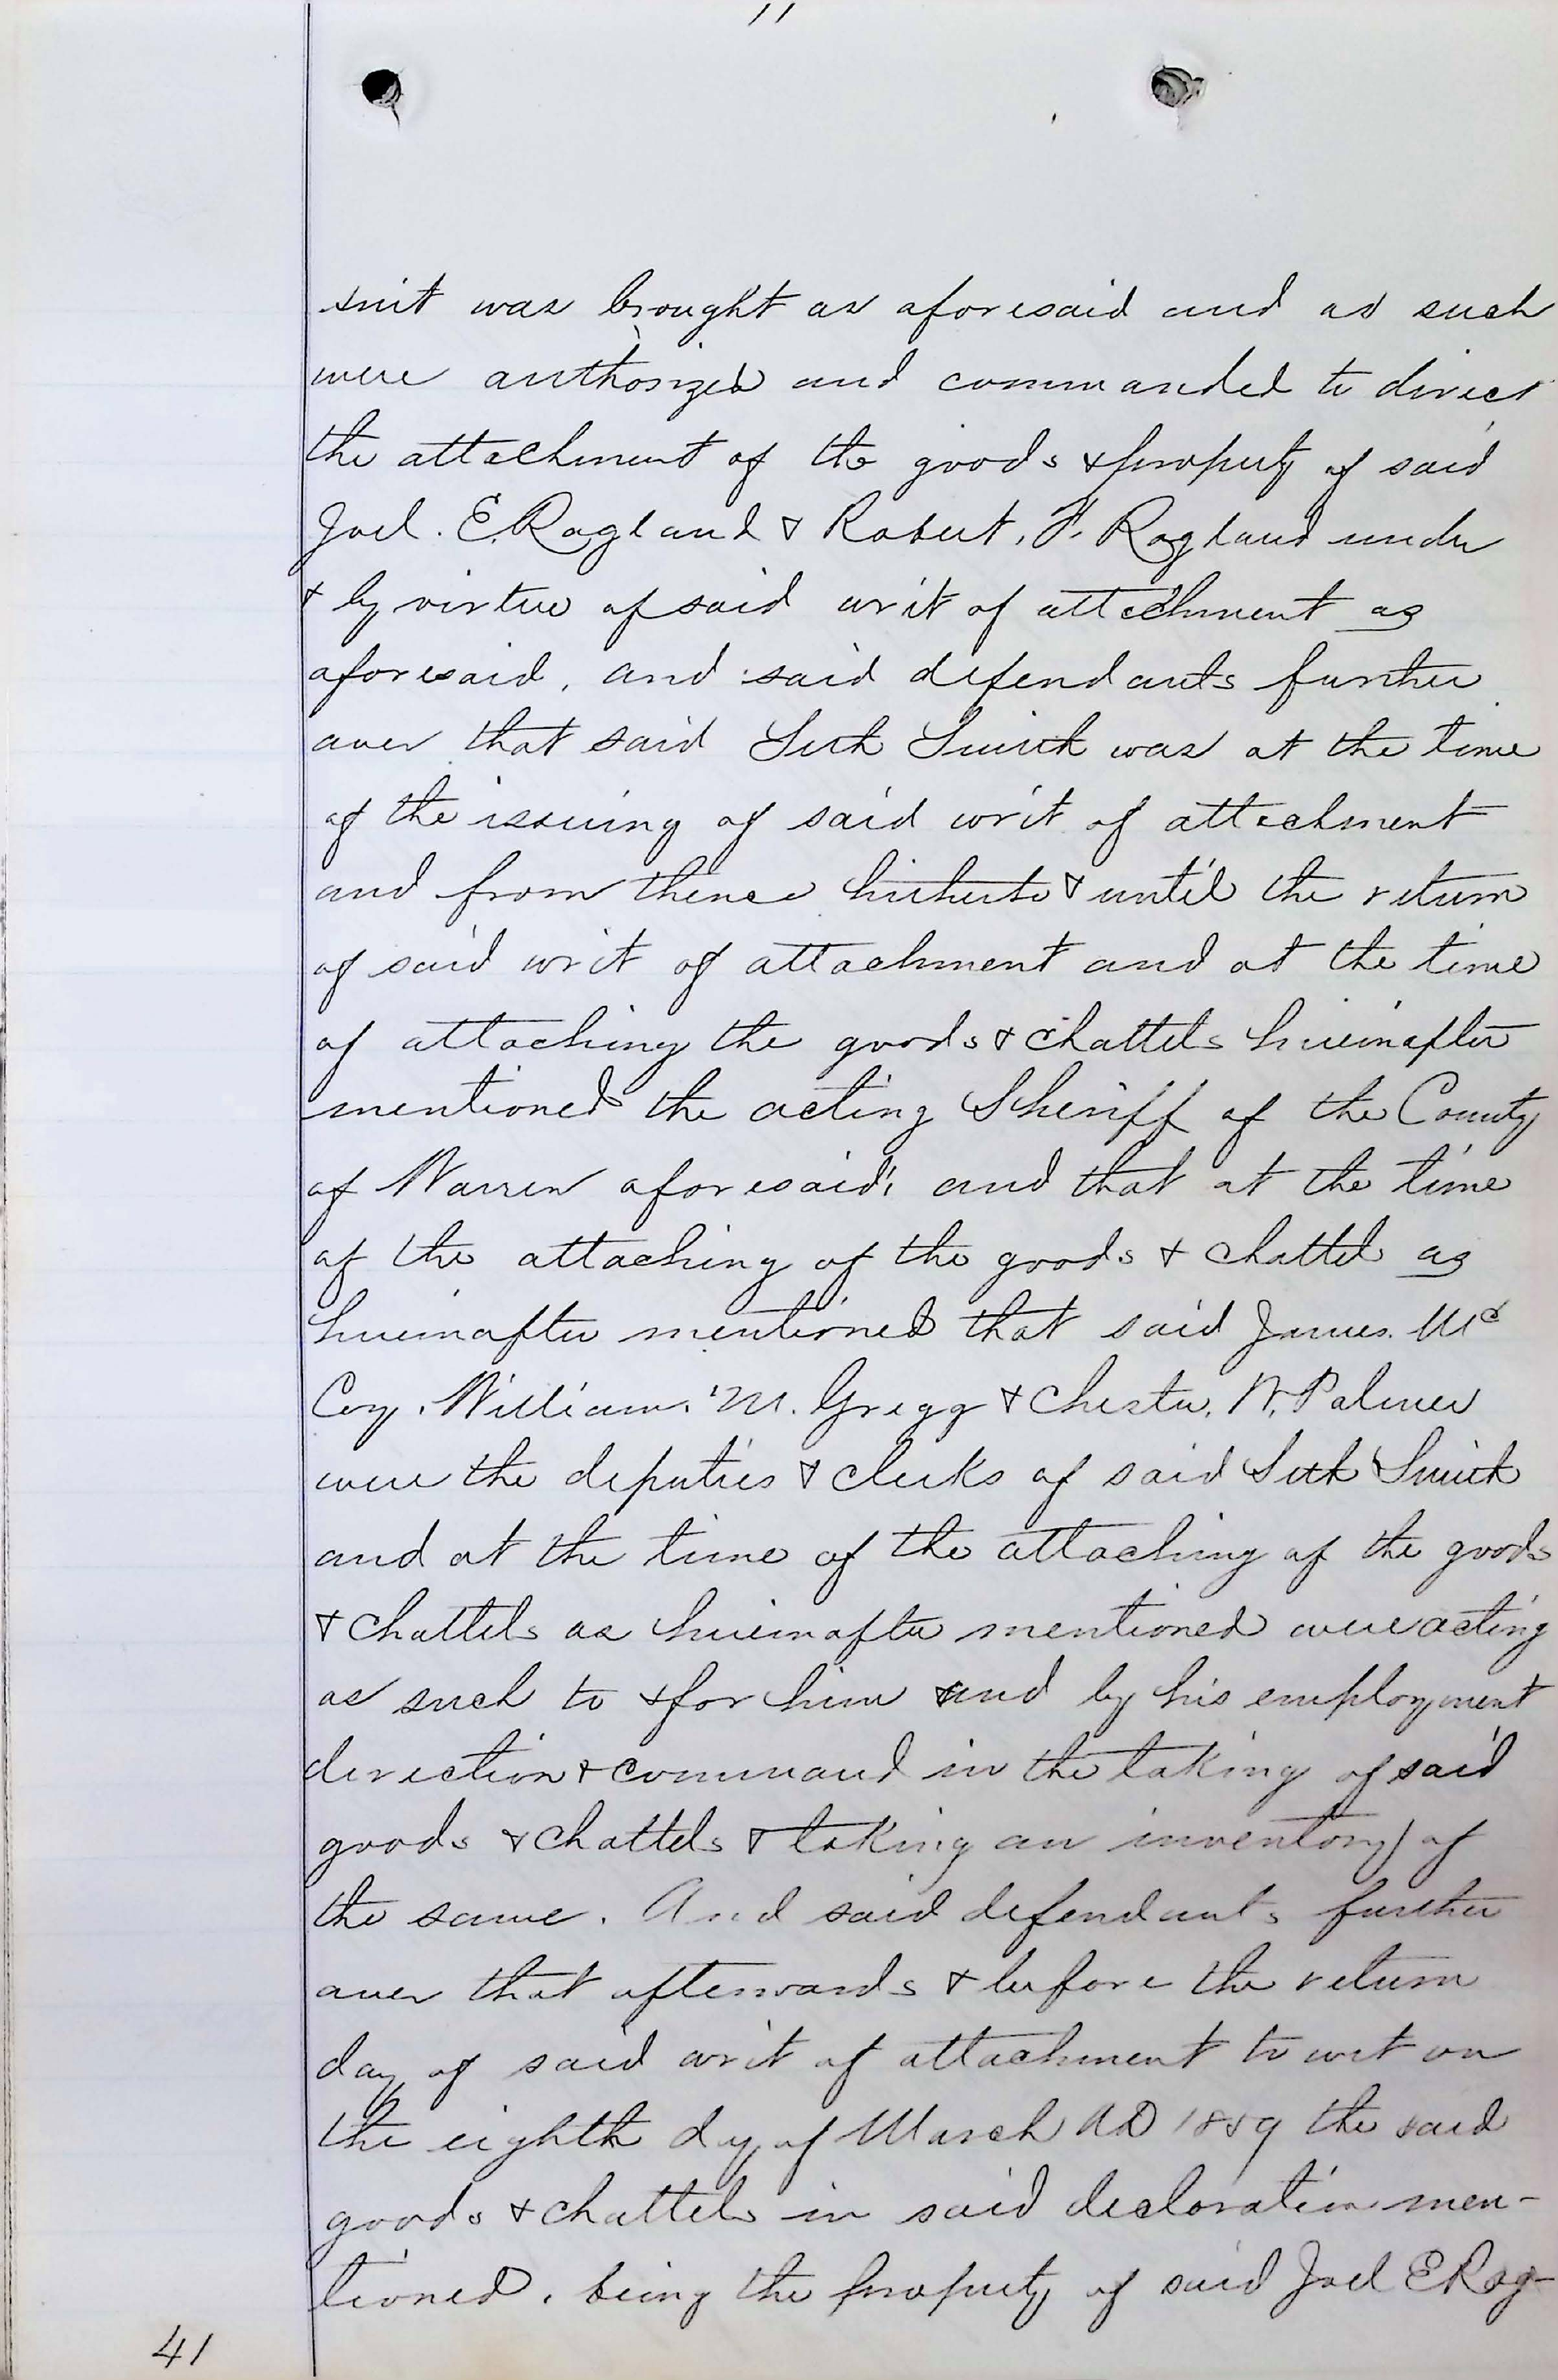 11
suit was brought as aforesaid and as such
were authorized and commanded to direct
the attachment of the goods & property of said
Joel. E. Ragland & Robert. F. Ragland under
& by virtue of said writ of attachment as
aforesaid, and said defendants further
aver that said Seth Smith was at the time
of the issuing of said writ of attachment
and from thence hitherto & until the return
of said writ of attachment and at the time
of attaching the goods & chattels hereinafter
mentioned the acting Sheriff of the County
of Warren aforesaid; and that at the time
of the attaching of the goods & chattels as
hereinafter mentioned that said James. Mc
Coy. William. M. Gregg & Chester. W. Palmer
were the deputies & clerks of said Seth Smith
and at the time of the attaching of the goods
& chattels as hereinafter mentioned were acting
as such to & for him and by his employment
direction & command in the taking of said
goods & chattels & taking an inventory of
the same. And said defendants further
aver that afterwards & before the return
day of said writ of attachment to wit on
the eighth day of March AD 1859 the said
goods & chattels in said declaration men-
tioned. being the property of said Joel E Rag-
41